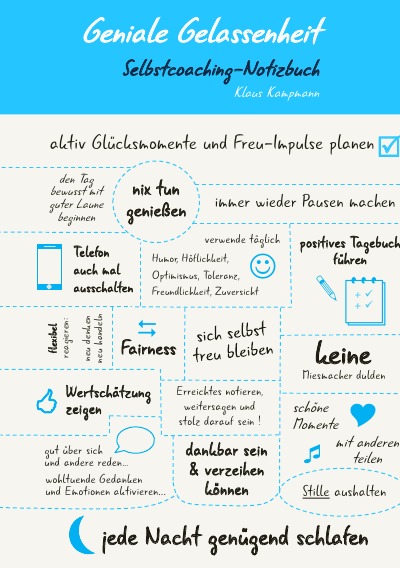 Geniale Gelassenheit
Selbstcoaching-Notizbuch
Klaus Kampmann
aktiv Glücksmomente und Freu-Impulse planen
den Tag
bewusst mit
guter Laune
beginnen
nix tun
genießen
immer wieder Pausen machen
Telefon
auch mal
ausschalten
verwende täglich
Humor, Höflichkeit,
Optimismus, Toleranz,
Freundlichkeit, Zuversicht
positives Tagebuch
führen
flexibel
reagieren:
neu denken
neu handeln
Fairness
sich selbst
treu bleiben
keine
Miesmacher dulden
Wertschätzung
zeigen
Erreichtes notieren,
weitersagen und
stolz darauf sein !
schöne
Momente
mit anderen
teilen
gut über sich
und andere reden...
wohltuende Gedanken
und Emotionen aktivieren...
dankbar sein
& verzeihen
können
Stille aushalten
jede Nacht genügend schlafen